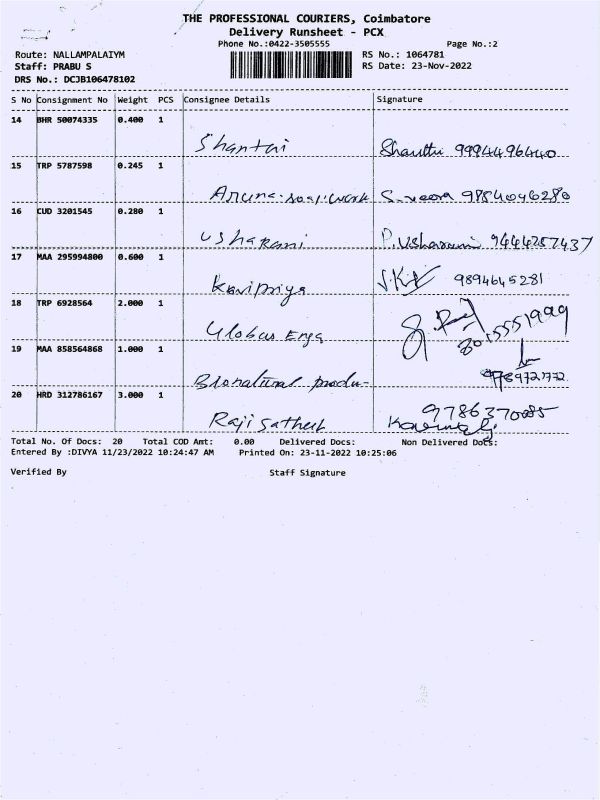 THE PROFESSIONAL COURIERS, Coimbatore
Delivery Runsheet - PCX
Phone No.:0422-3505555 Page No.:2
Route: NALLAMPALAIYM RS No.: 1064781
Staff: PRABU S RS Date: 23-Nov-2022
DRS No.: DCJB106478102
S No Consignment No Weight PCS Consignee Details Signature
14 BHR 50074335 0.400 1
Shantai Shanthi 9994496440
15 TRP 5787598 0.245 1
Aruna S. 9884046280
16 CUD 3201545 0.280 1
Usharani P. Usharani 9444257437
17 MAA 295994800 0.600 1
Kavipriya 9894645281
18 TRP 6928564 2.000 1
Globus Engg 8015551999
19 MAA 858564868 1.000 1
Bionatural produ- 9789721772
20 HRD 312786167 3.000 1
9786370085
Raji Satheesh
Total No. Of Docs: 20 Total COD Amt: 0.00 Delivered Docs: Non Delivered Docs:
Entered By :DIVYA 11/23/2022 10:24:47 AM Printed On: 23-11-2022 10:25:06
Verified By Staff Signature